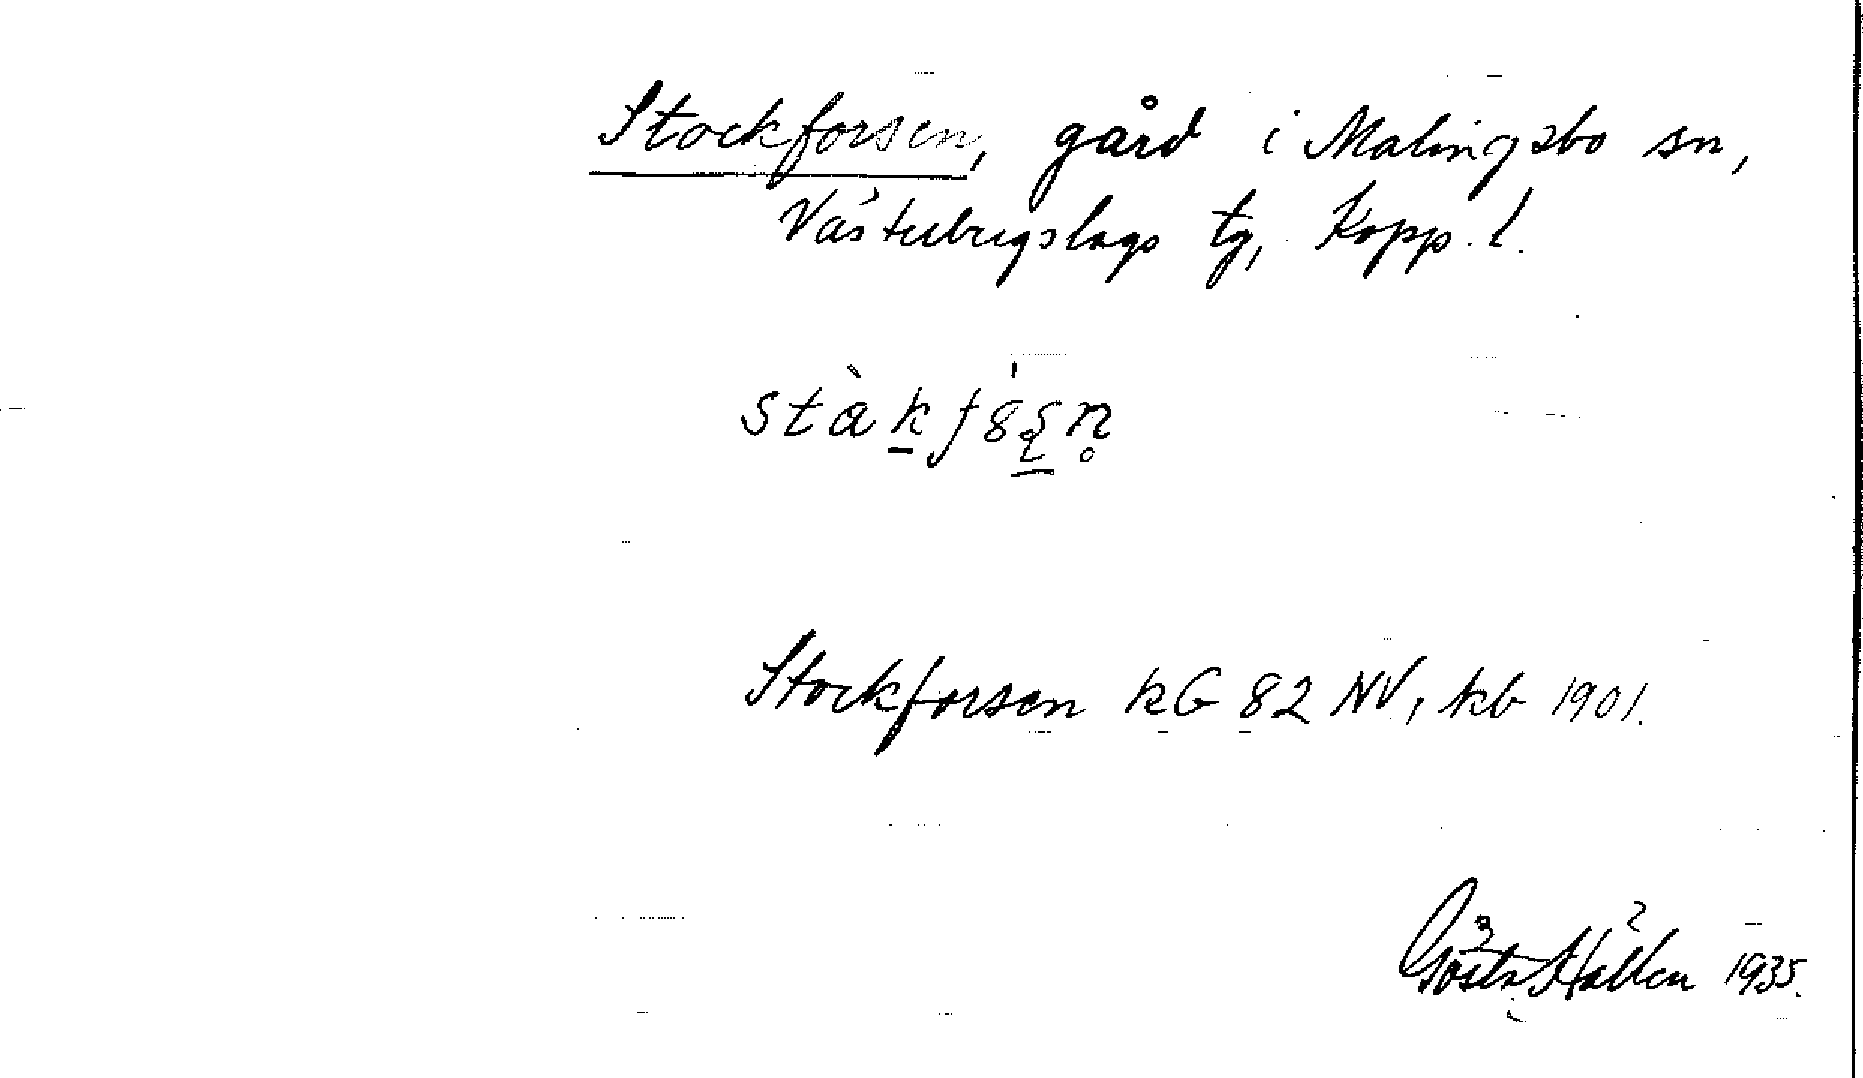 Stockforsen, gård i Malingsbo sn,
Västerbergslags tg, Kopp. l.
stàkfȣ́ʂn̥
Stockforsen kG 82 NV, kb 1901.
Gösta Hållen 1935.